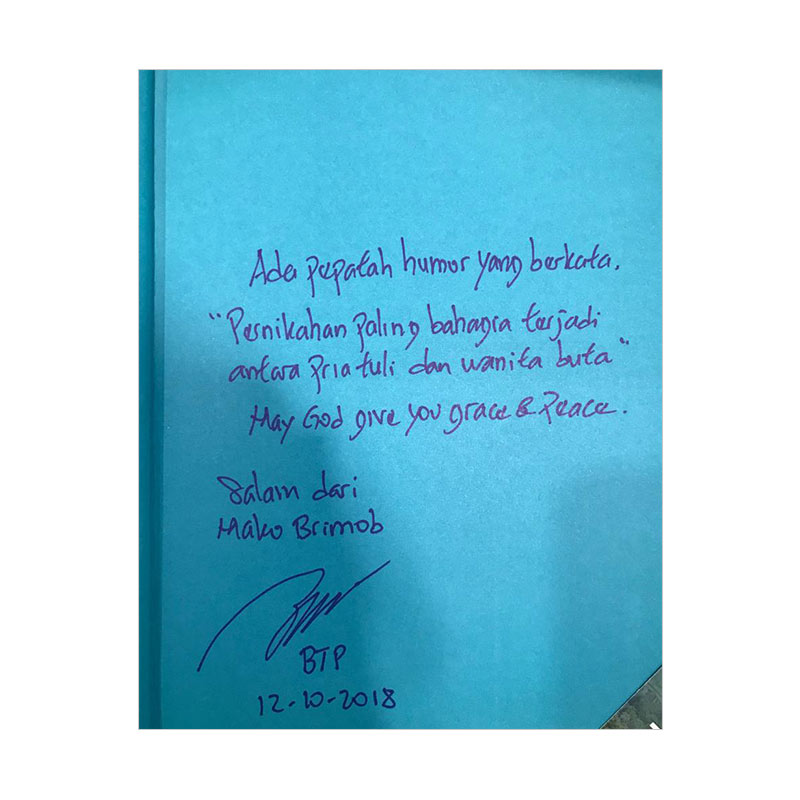 Ada pepatah humor yang berkata.
"Pernikahan paling bahagia terjadi
antara pria tuli dan wanita buta"
May God give you grace & Peace.
Salam dari
Mako Brimob
BTP
12-10-2018